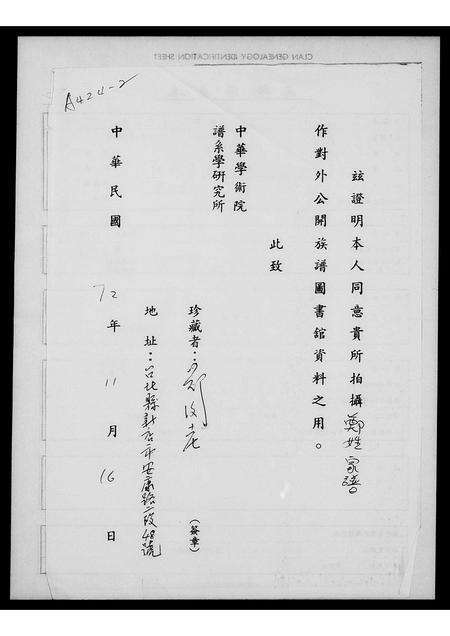 A424-2
茲證明本人同意貴所拍攝鄭姓家譜
作對外公開族譜圖書舘資料之用。
此致
中華學術院
譜系學研究所
珍藏者：鄭 (簽章)
地址：台北縣新店市安康路二段48號
中華民國72年11月16日
CLAN GENEALOGY IDENTIFICATION SHEET